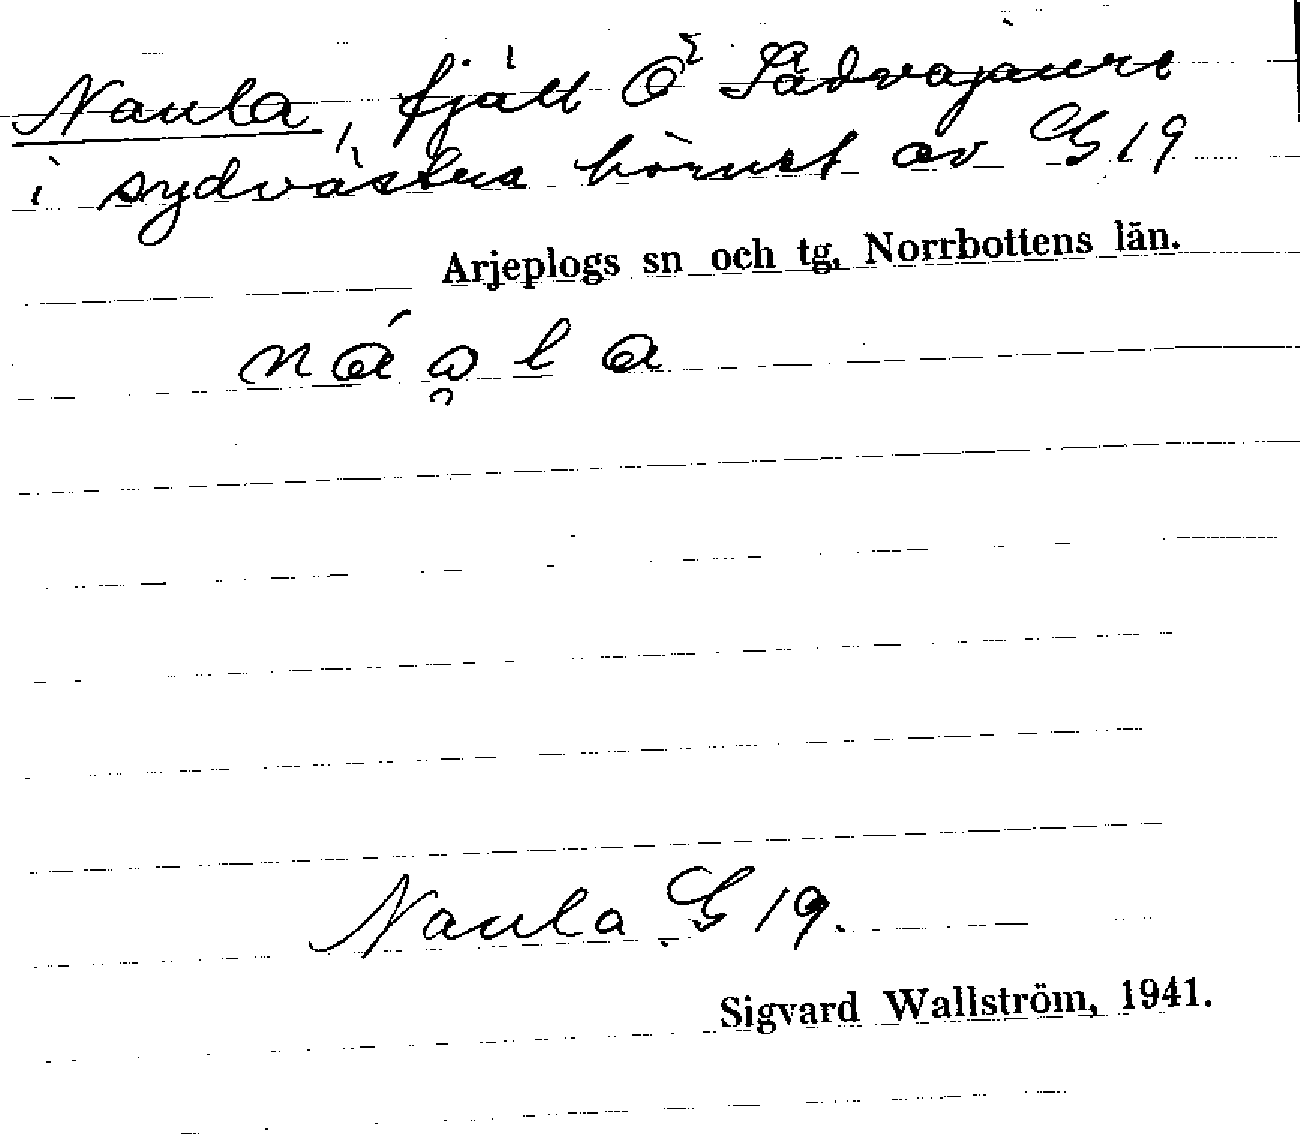 Naula, fjäll Ö Sädvajaure
i sydvästra hörnet av G 19
Arjeplogs sn och tg, Norrbottens län.
Naula G 19.
Sigvard Wallström, 1941.